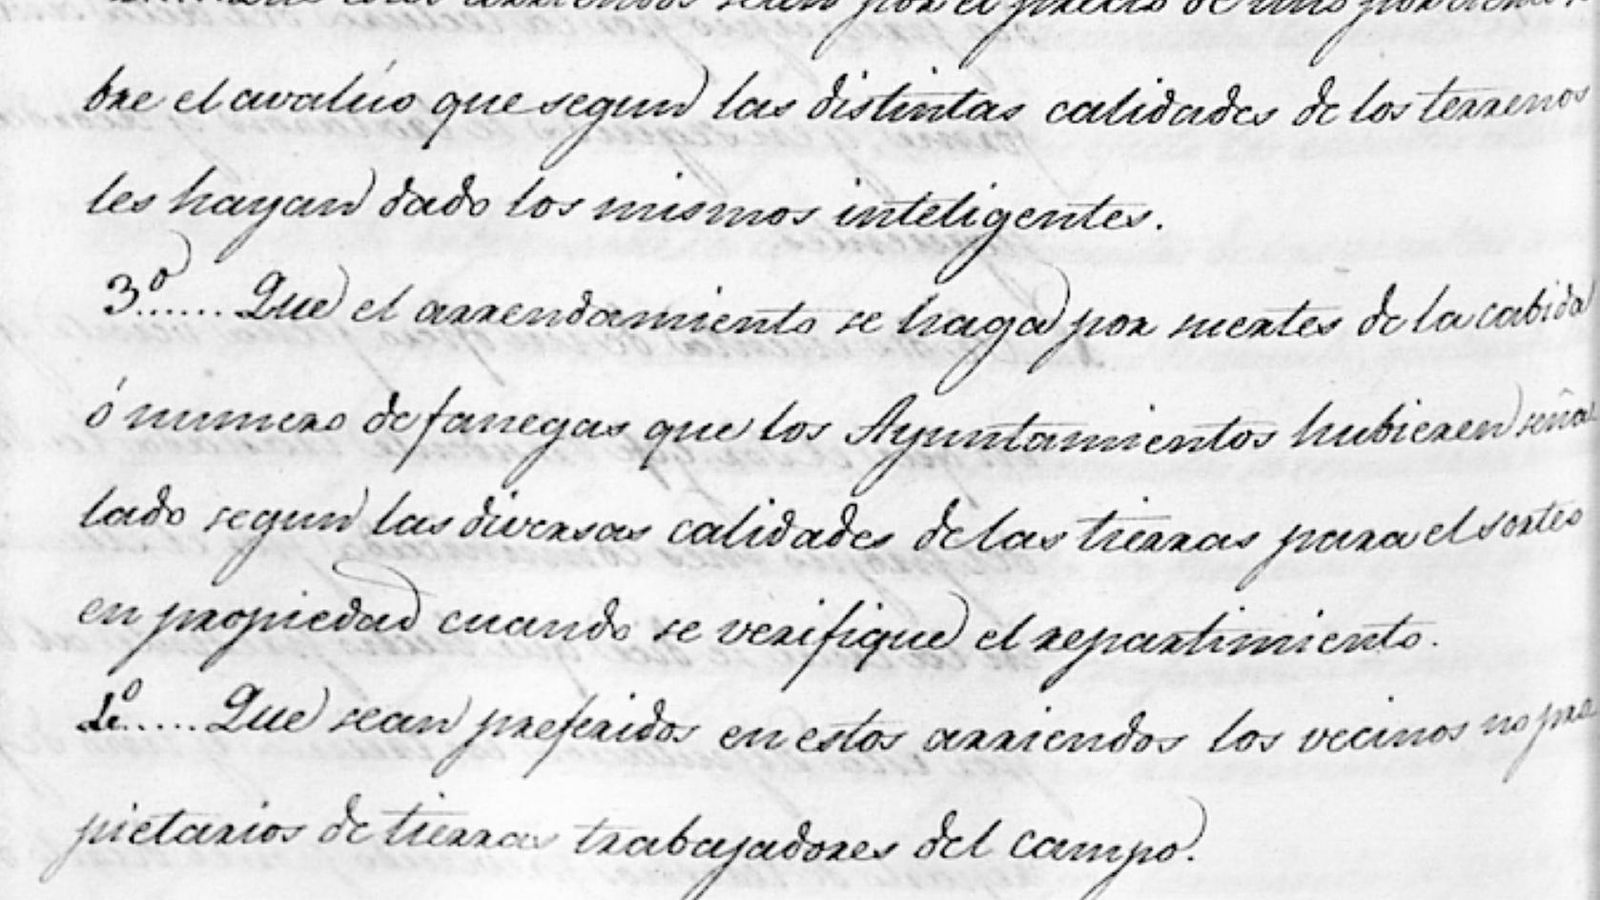 Que estos arriendos sean por el precio de uno por ciento so
bre el avalúo que segun las distintas calidades de los terrenos
les hayan dado los mismos inteligentes.
3º...... Que el arrendamiento se haga por suertes de la cabida
ó numero de fanegas que los Ayuntamientos hubieren seña
lado segun las diversas calidades de las tierras para el sorteo
en propiedad cuando se verifique el repartimiento.
4º...... Que sean preferidos en estos arriendos los vecinos no pro
pietarios de tierras trabajadores del campo.